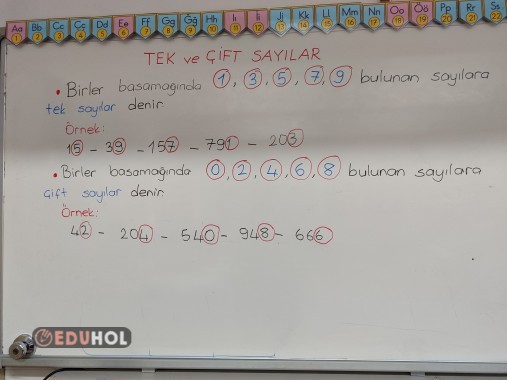 Aa Bb Cc Çç Dd Ee Ff Gg Ğğ Hh Iı İi Jj Kk Ll Mm Nn Oo Öö Pp Rr Ss
1 2 3 4 5 6 7 8 9 10 11 12 13 14 15 16 17 18 19 20 21 22
TEK ve ÇİFT SAYILAR
• Birler basamağında 1, 3, 5, 7, 9 bulunan sayılara
tek sayılar denir
Örnek:
15 - 39 - 157 - 791 - 203
• Birler basamağında 0, 2, 4, 6, 8 bulunan sayılara
Çift sayılar denir.
Örnek:
42 - 204 - 540 - 948 - 666
EDUHOL